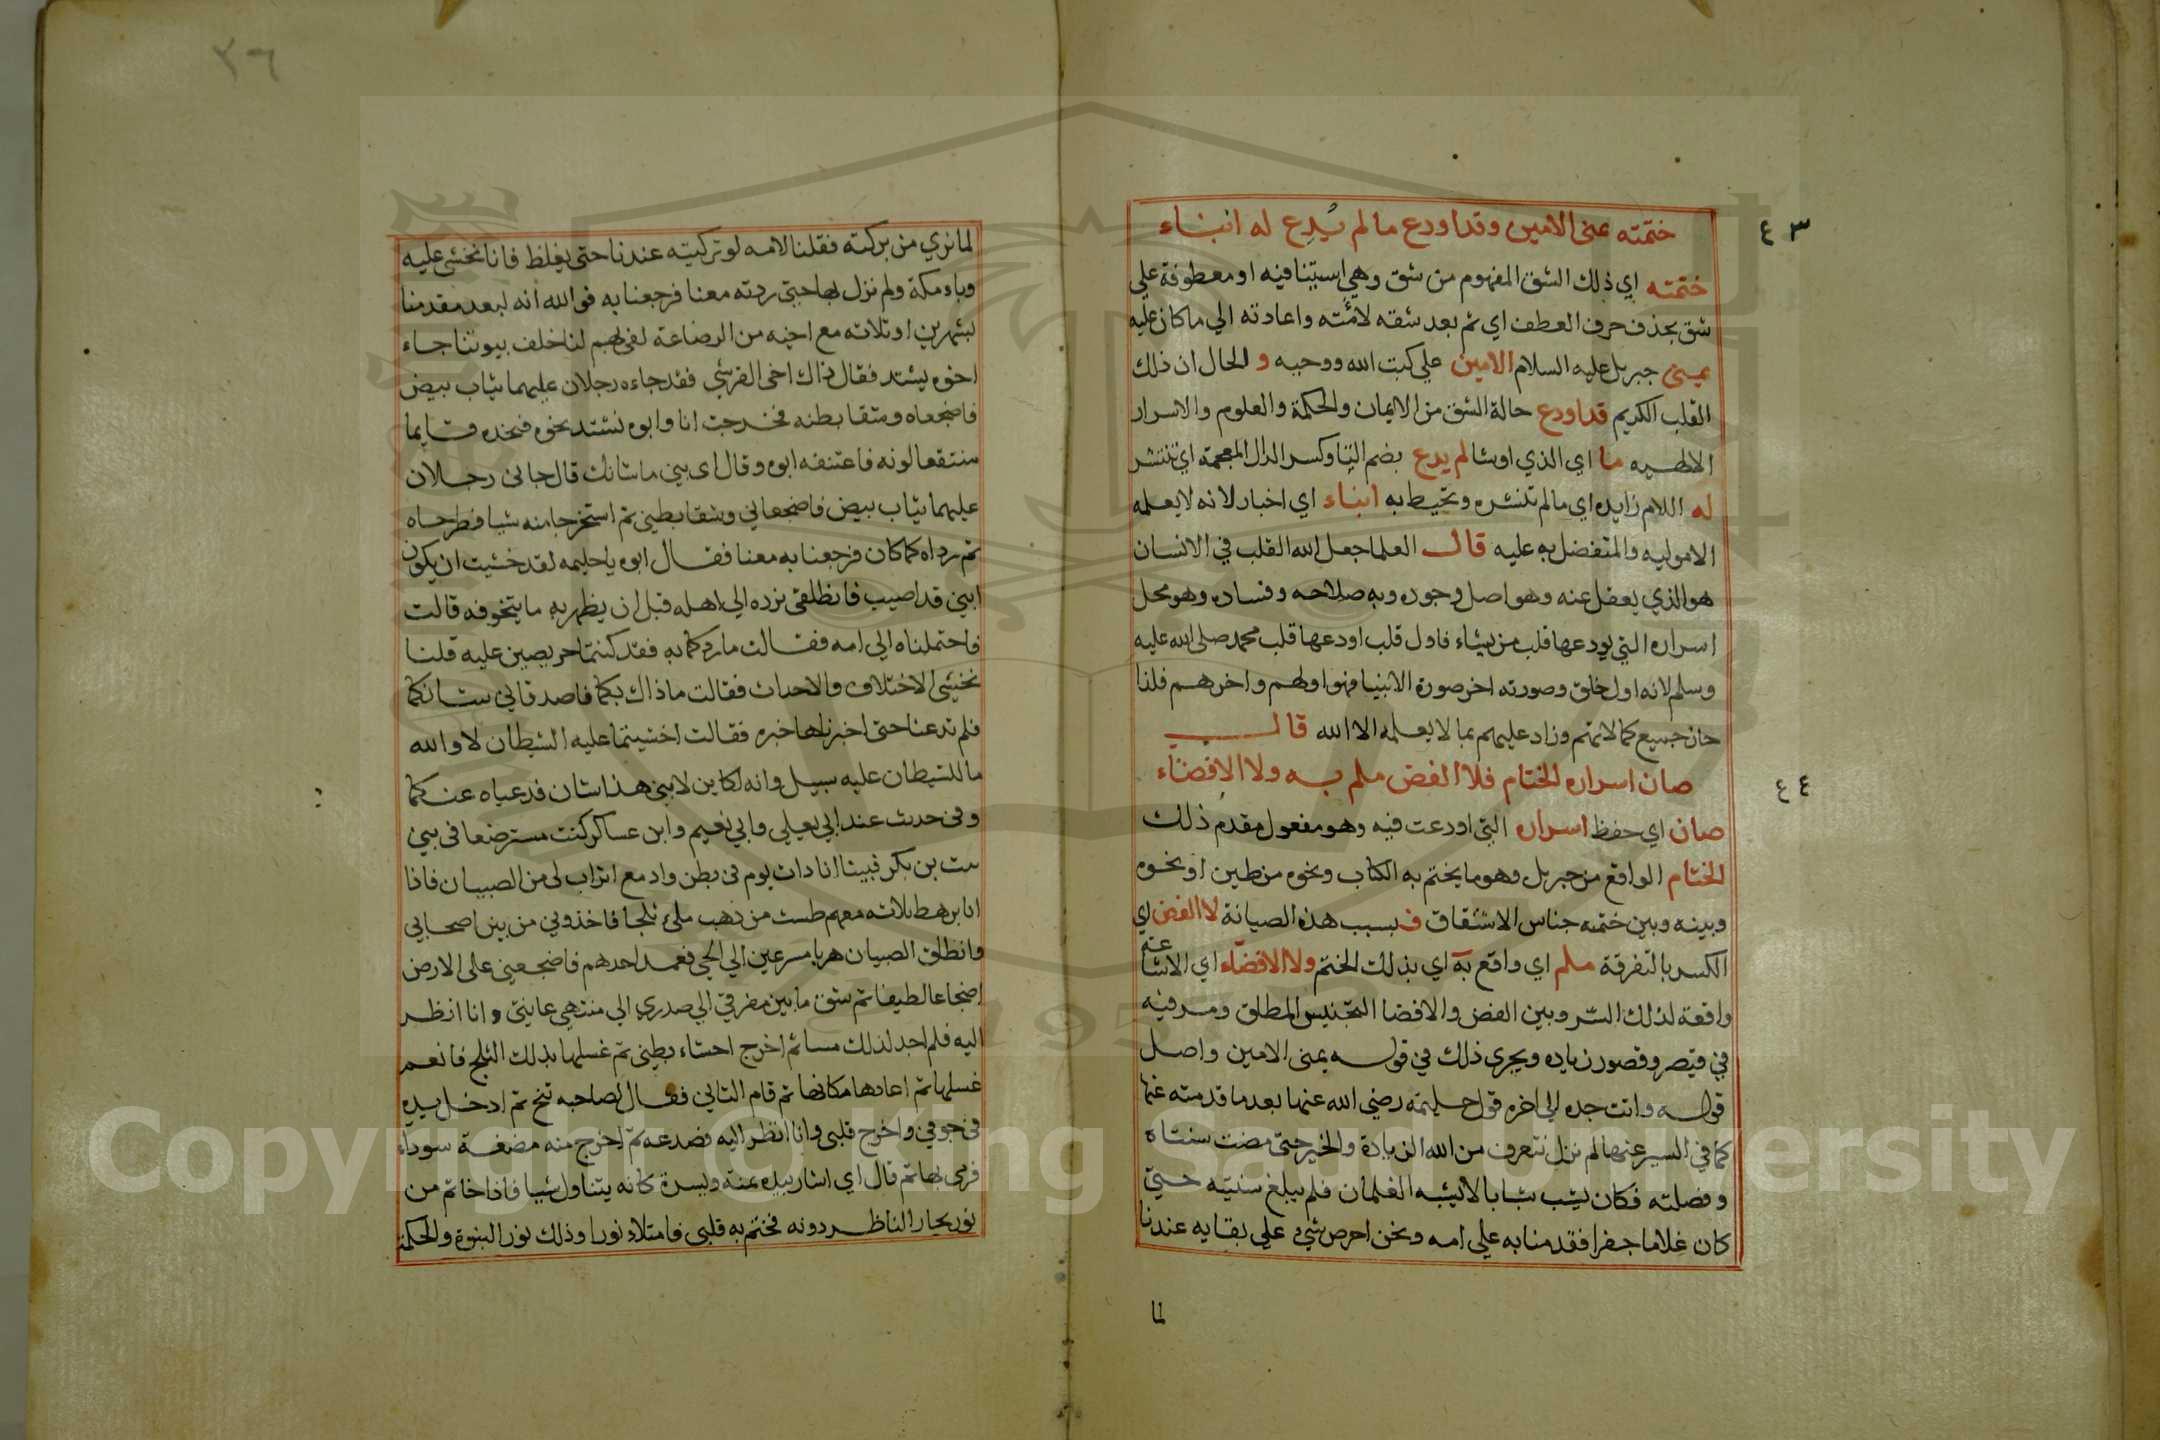 ٤٣
ختمته يمنى الامين وقد اودع ما لم يُذِع له انباء
ختمته اي ذلك الشق المفهوم من شق وهي استينافيه او معطوفة علي
شق بحذف حرف العطف اي ثم بعد شقه لامَته واعادته الي ما كان عليه
يمنى جبريل عليه السلام الامين علي كتب الله ووحيه و الحال ان ذلك
القلب الكريم قد اودع حالة الشق من الايمان والحكمة والعلوم والاسرار
الالهيه ما اي الذي اوشا لم يدع بضم التا وكسر الذال المعجمة اي تنتشر
له اللام زايده اي ما لم تنشره وتحيط به انباء اي اخبار لانه لا يعلمه
الا موليه والمتفضل به عليه قال العلما جعل الله القلب في الانسان
هو الذي يعقل عنه وهو اصل وجوده وبه صلاحه وفساده وهو محل
اسراره التي يودعها قلب من يشاء فاول قلب اودعها قلب محمد صلى الله عليه
وسلم لانه اول خلق وصورته اخر صورة الانبيا فهو اولهم واخرهم فلذا
حاز جميع كمالاتهم وزاد عليهم بما لا يعلمه الا الله قال
٤٤
صان اسراره الختام فلا الفض ملم به ولا الافضاء
صان اي حفظ اسراره التي اودعت فيه وهو مفعول مقدم ذلك
الختام الواقع من جبريل وهو ما يختم به الكتاب ونحوه من طين او نحوه
وبينه وبين ختمته جناس الاشتقاق ف بسبب هذه الصيانة لا الفض اي
الكسر بالتفرقة ملم اي واقع به اي بذلك الختم ولا الافضاء اي الاشاعة
واقعة لذلك السّر وبين الفض والافضا التجنيس المطلق ومر فيه
في قيصر وقصور زياده ويجري ذلك في قوله يمنى الامين واصل
قوله واتت جده الي اخره قول حليمة رضي الله عنها بعد ما قدمته عنها
كما في السير عنها لم نزل نتعرف من الله الزيادة والخير حتى مضت سنتاه
وفصلته فكان يشب شبابا لا يشبه الغلمان فلم يبلغ سنتيه حتي
كان غلاما جفرا فقدمنا به علي امه ونحن احرص شيء علي بقايه عندنا
لما
٢٦
لما نري من بركته فقلنا لامه لو تركتيه عندنا حتى يغلظ فانا نخشي عليه
وباء مكة ولم نزل بها حتى ردته معنا فرجعنا به فوالله انه لبعد مقدمنا
بشهرين او ثلاثه مع اخيه من الرضاعة لفي بهم لنا خلف بيوتنا جاء
اخوه يشتد فقال ذاك اخى القرشي فقد جاءه رجلان عليهما ثياب بيض
فاضجعاه وشقا بطنه فخرجت انا وابوه نشتد نحوه فنجده قايما
منتقعا لونه فاعتنقه ابوه وقال اى بني ما شانك قال جانى رجلان
عليهما ثياب بيض فاضجعاني وشقا بطني ثم استخرجا منه شيا فطرحاه
ثم رداه كما كان فرجعنا به معنا فقال ابوه يا حليمه لقد خشيت ان يكون
ابني قد اصيب فانطلقى نرده الي اهله قبل ان يظهر به ما يتخوفه قالت
فاحتملناه الي امه فقالت ما ردكما به فقد كنتما حريصين عليه قلنا
نخشى الاختلاف والاحداث فقالت ما ذاك بكما فاصدقاني شانكما
فلم تدعنا حتى اخبرناها خبره فقالت اخشيتما عليه الشيطان لا والله
ما للشيطان عليه سبيل وانه لكاين لابنى هذا شان فدعياه عنكما
وفى حديث عند ابي يعلي وابي نعيم وابن عساكر كنت مسترضعا فى بني
ليث بن بكر فبينا انا ذات يوم فى بطن واد مع اتراب لى من الصبيان فاذا
انا برهط ثلاثه معهم طست من ذهب ملئ ثلجا فاخذوني من بين اصحابي
وانطلق الصبيان هربا مسرعين الي الحي فعمد احدهم فاضجعني على الارض
اضجاعا لطيفا ثم شق ما بين مفرقي الي صدري الي منتهي عانيتي وانا انظر
اليه فلم اجد لذلك مسا ثم اخرج احشاء بطني ثم غسلها بذلك الثلج فانعم
غسلها ثم اعادها مكانها ثم قام الثاني فقال لصاحبه تنح ثم ادخل يده
فى جوفي واخرج قلبى وانا انظر اليه فصدعه ثم اخرج منه مضغة سوداء
فرمى بها ثم قال اي اشار بيده يمنة ويسرة كانه يتناول شيا فاذا خاتم من
نور يحار الناظر دونه فختم به قلبى فامتلاء نورا وذلك نور النبوة والحكمة
Copyright © King Saud University
195